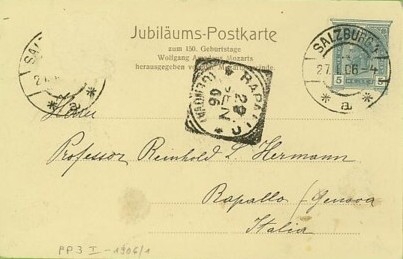 Jubiläums-Postkarte
zum 150. Geburtstage
Wolfgang Mozarts
herausgegeben
SALZBURG
27.I.06-4
a
5
5
SALZ
a
RAPALLO
(GENOVA)
28
GEN
06
Herrn
Professor Reinhold L. Hermann
Rapallo / Genova
Italia
PP3 I - 1906/1